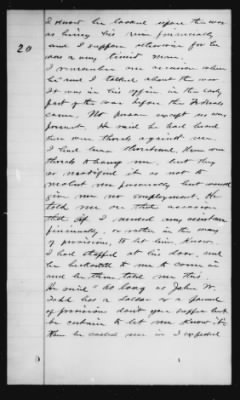 I know he looked upon the war
as being his ruin financially
and I suppose otherwise for he
was a very timid man.
20
I remember one occasion when
he and I talked about the war
It was in his office in the early
part of the war before the Federals
came. No person except us was
present. He said he had heard
there were threats against me.
I had been threatened. There were
threats of hanging me, but they
so modified it as not to
molest me personally but would
give me no employment. He
told me on that occasion
that if I needed any assistance
financially, or rather in the way
of provisions, to let him know.
I had stopped at his door, and
he beckoned to me to come in
and he then told me this.
He said "as long as John W.
Todd has a dollar or a pound
of provision dont you suffer but
be certain to let me know it."
When he called me in I expected